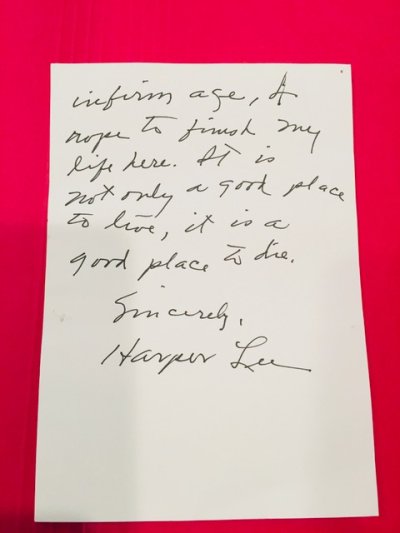 infirm age, I
hope to finish my
life here. It is
not only a good place
to live, it is a
good place to die.
Sincerely,
Harper Lee